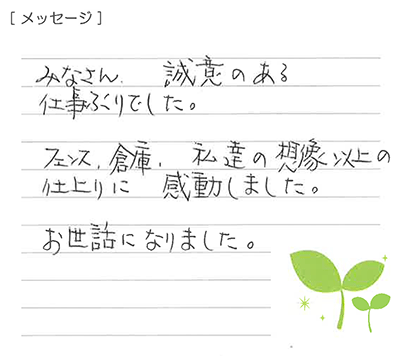 [メッセージ]
みなさん、誠意のある
仕事ぶりでした。
フェンス、倉庫、私達の想像以上の
仕上りに 感動しました。
お世話になりました。